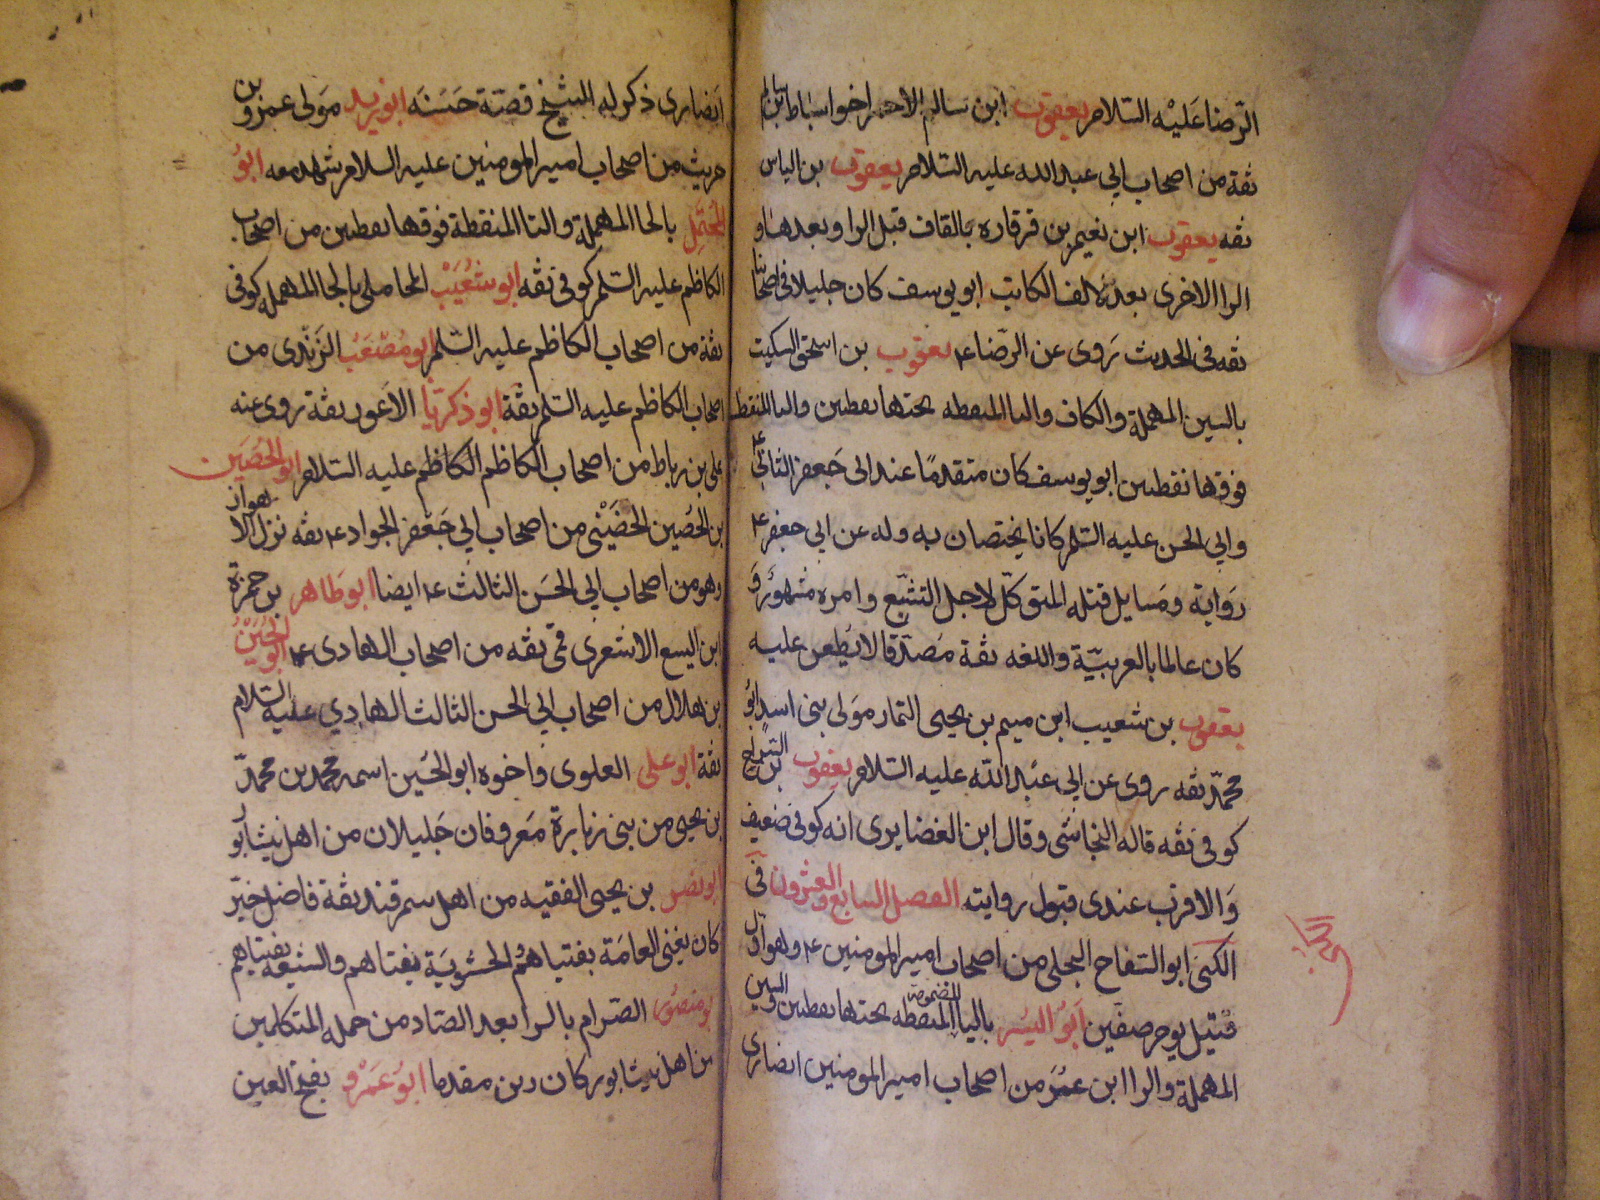 الرضا عليه السلام يعقوب ابن سالم الاحمر اخو اسباط ابن سالم
ثقة من اصحاب ابي عبد الله عليه السلام يعقوب بن الياس
ثقه يعقوب ابن نعيم بن قرقاره بالقاف قبل الرا وبعدها و
الرا الاخرى بعد الالف الكاتب ابو يوسف كان جليلا في اصحابنا
ثقه في الحديث روى عن الرضا ع يعقوب بن اسحق السكيت
بالسين المهملة والكاف واليا المنقطه تحتها نقطتين والتا المنقطة
فوقها نقطتين ابو يوسف كان متقدما عند ابي جعفر الثاني ع
وابي الحسن عليه السلم كانا يختصان به وله عن ابي جعفر ع
رواية ومسايل قتله المتوكل لاجل التشيع وامره مشهور و
كان عالما بالعربية واللغه ثقة مصدقا لا يطعن عليه
يعقوب بن شعيب ابن ميثم بن يحيى التمار مولى بني اسد ابو
محمد ثقه روى عن ابي عبد الله عليه السلام يعقوب بن السراج
كوفي ثقه قاله النجاشي وقال ابن الغضايري انه كوفي ضعيف
والاقرب عندى قبول روايته الفصل السابع والعشرون في
الكنى ابو التفاح البجلي من اصحاب امير المومنين ع وهو اول
قتيل يوم صفين ابو اليسر باليا المضمومة المنقطه تحتها نقطتين والسين
المهملة والرا ابن عمر من اصحاب امير المومنين انصارى
انصارى ذكر له الشيخ قصة حسنه ابو زيد مولى عمرو بن
حريث من اصحاب امير المومنين عليه السلام شهد معه ابو
المحتمل بالحا المهملة والتا المنقطة فوقها نقطتين من اصحاب
الكاظم عليه السلم كوفي ثقه ابو شعيب المحاملي بالحا المهمله كوفى
ثقة من اصحاب الكاظم عليه السلم ابو مصعب الزيدى من
اصحاب الكاظم عليه السلم ثقة ابو ذكريا الاعور ثقة روى عنه
على بن رباط من اصحاب الكاظم الكاظم عليه السلام ابو الحصين
بن الحصين الحضينى من اصحاب ابي جعفر الجواد ع ثقه نزل الاهواز
وهو من اصحاب ابي الحسن الثالث ع ايضا ابو طاهر بن حمزة
ابن اليسع الاشعرى قمى ثقه من اصحاب الهادى ع ابو الحسين
بن هلال من اصحاب ابي الحسن الثالث الهادي عليه السلام
ثقة ابو على العلوى واخوه ابو الحسين اسمه محمد بن محمد
بن يحيى من بنى زبارة معروفان جليلان من اهل نيشابو
ابو نصر بن يحيى الفقيه من اهل سمرقند ثقة فاضل خير
كان يفتى العامة بفتياهم والحشوية بفتاهم والشيعه بفتياهم
ابو منصور الصرام بالرا بعد الصاد من جملة المتكلمين
من اهل نيشابور كان رئيس مقدما ابو عمرو بفتح العين